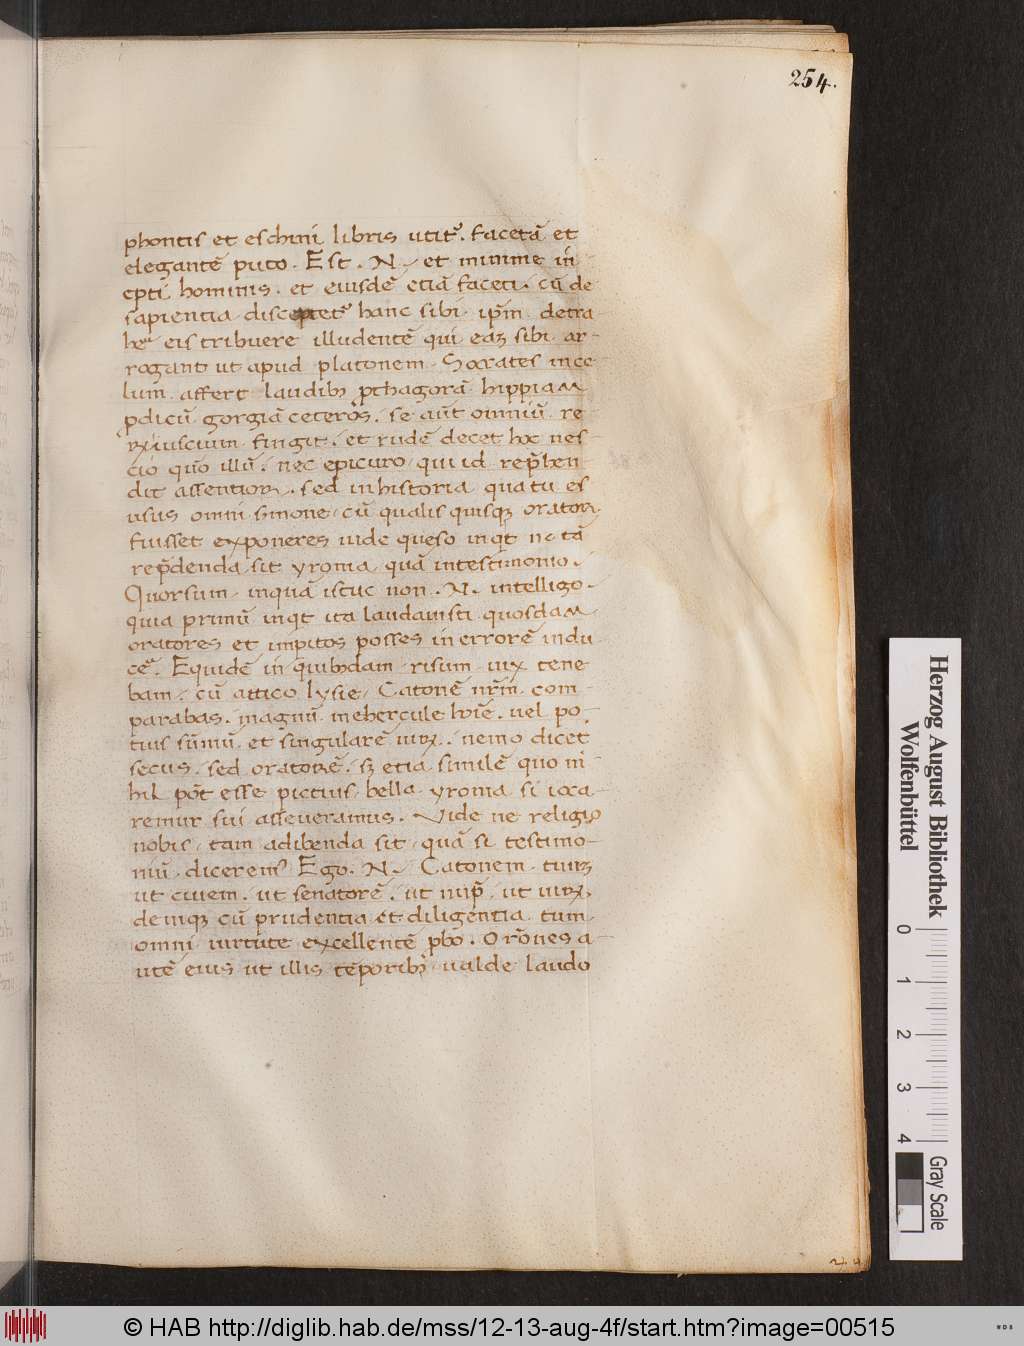 254.
phontis et eschini libris utit᷒. facetā et
elegantē puto. Est. N. et minime in
epti hominis. et eiusdē etiā faceti. cū de
sapientia disceptet᷒ hanc sibi. ip̄m detra-
he᷒ eis tribuere illudentē qui eaꝫ sibi. ar-
rogant ut apud platonem. Socrates in ce
lum affert laudibꝫ pthagorā hippiam
pdicū gorgiā ceteros. se aūt omniū re
ꝝ iuscium fingit. et rudē decet hoc nes-
cio quo illū. nec epicuro qui id rep̄hen
dit assentior. sed in historia qua tu es
usus omni smone. cū qualis quisqꝫ orator
fuisset exponeres uide queso inqt ne tā
rep̄denda sit yronia quā in testimonio.
Quorsum. inquā istuc non. N. intelligo.
quia primū inqt ita laudavisti quosdam
oratores et impitos posses in errorē indu
ce᷒. Equidē in quibdam. risum uix tene
bam. cū attico lysie. Catonē nr̄m com-
parabas. magnū mehercule hoīē. uel po
tius sūmū et singularē uirꝝ. nemo dicet
secus. sed oratorē. sꝫ etiā similē quo ni
hil pōt esse pictius. bella yronia si ioca
remur sui asseueramus. Vide ne religio
nobis. tam adibenda sit quā si testimo-
niū dicerem᷒ Ego. N. Catonem tuuꝫ
ut ciuem. ut senatorē. ut imp̄. ut uirꝝ.
deniqꝫ cū prudentia et diligentia tum
omni uirtute excellentē pbo. Orōnes a
utē eius ut illis tēporibꝫ ualde laudo
Herzog August Bibliothek
Wolfenbüttel
0 1 2 3 4
Gray Scale
© HAB http://diglib.hab.de/mss/12-13-aug-4f/start.htm?image=00515